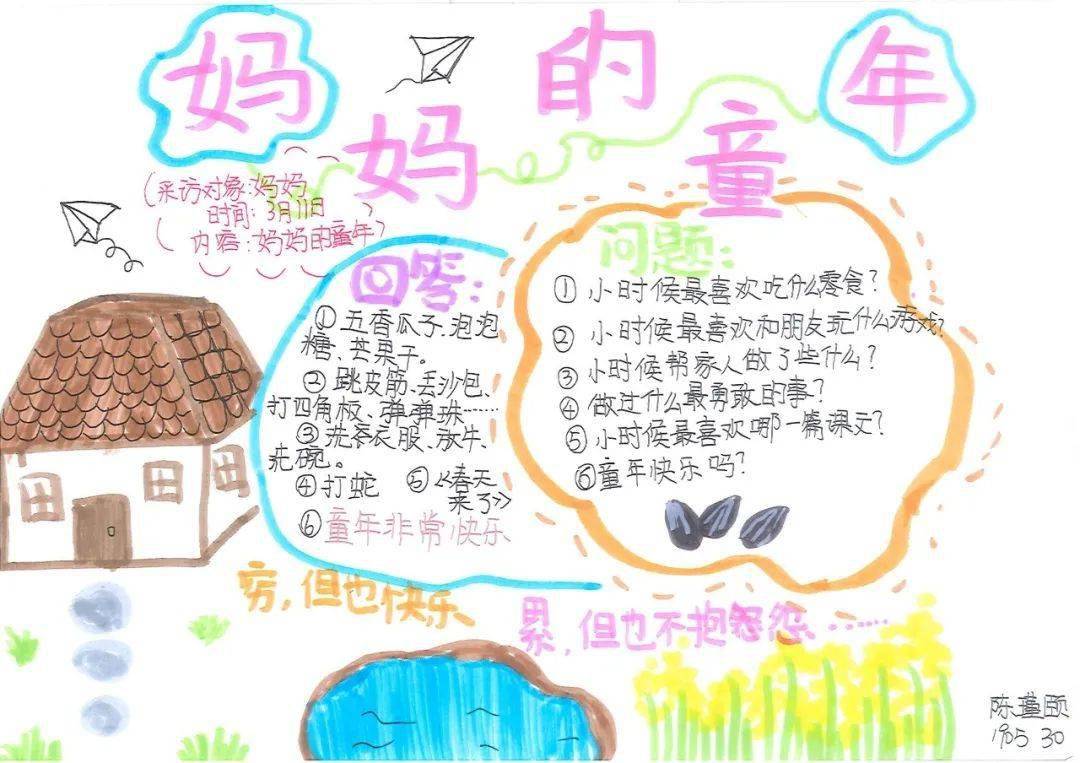 妈妈的童年
(采访对象:妈妈)
时间:3月11日
(内容:妈妈的童年)
回答:
①五香瓜子、泡泡
糖、芒果子。
②跳皮筋、丢沙包、
打四角板、弹弹珠……
③洗衣服、放牛、
洗碗。
④打蛇 ⑤《春天
来了》
⑥童年非常快乐
问题:
①小时候最喜欢吃什么零食?
②小时候最喜欢和朋友玩什么游戏?
③小时候帮家人做了些什么?
④做过什么最勇敢的事?
⑤小时候最喜欢哪一篇课文?
⑥童年快乐吗?
穷,但也快乐
累,但也不抱怨怨……
陈瑾颐
1905 30